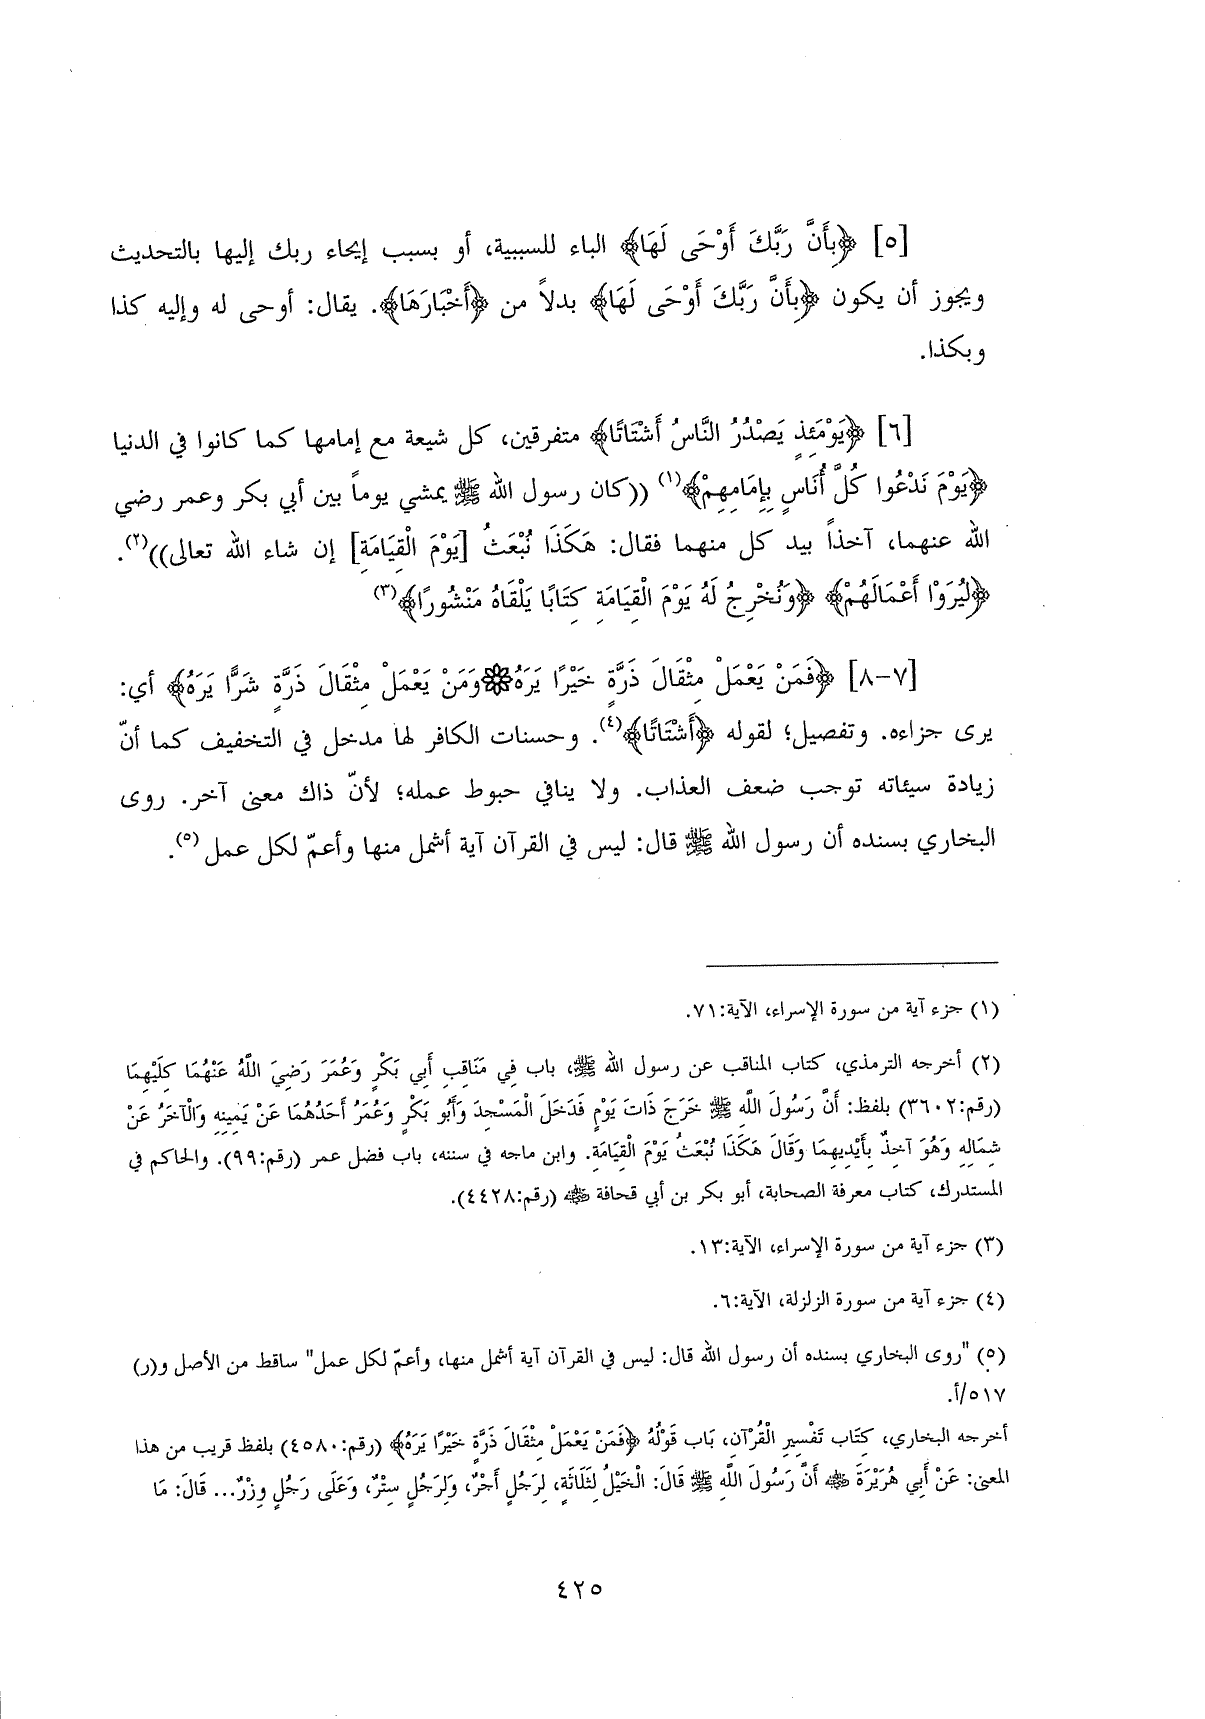 [٥] ﴿بِأَنَّ رَبَّكَ أَوْحَى لَهَا﴾ الباء للسببية، أو بسبب إيحاء ربك إليها بالتحديث
ويجوز أن يكون ﴿بِأَنَّ رَبَّكَ أَوْحَى لَهَا﴾ بدلاً من ﴿أَخْبَارَهَا﴾. يقال: أوحى له وإليه كذا
وبكذا.
[٦] ﴿يَوْمَئِذٍ يَصْدُرُ النَّاسُ أَشْتَاتًا﴾ متفرقين، كل شيعة مع إمامها كما كانوا في الدنيا
﴿يَوْمَ نَدْعُوا كُلَّ أُنَاسٍ بِإِمَامِهِمْ﴾(١) ((كان رسول الله ﷺ يمشي يوماً بين أبي بكر وعمر رضي
الله عنهما، آخذاً بيد كل منهما فقال: هَكَذَا نُبْعَثُ [يَوْمَ الْقِيَامَةِ] إن شاء الله تعالى))(٢).
﴿لِيُرَوْا أَعْمَالَهُمْ﴾ ﴿وَنُخْرِجُ لَهُ يَوْمَ الْقِيَامَةِ كِتَابًا يَلْقَاهُ مَنْشُورًا﴾(٣)
[٧-٨] ﴿فَمَنْ يَعْمَلْ مِثْقَالَ ذَرَّةٍ خَيْرًا يَرَهُ❁وَمَنْ يَعْمَلْ مِثْقَالَ ذَرَّةٍ شَرًّا يَرَهُ﴾ أي:
يرى جزاءه. وتفصيل؛ لقوله ﴿أَشْتَاتًا﴾(٤). وحسنات الكافر لها مدخل في التخفيف كما أنّ
زيادة سيئاته توجب ضعف العذاب. ولا ينافي حبوط عمله؛ لأنّ ذاك معنى آخر. روى
البخاري بسنده أن رسول الله ﷺ قال: ليس في القرآن آية أشمل منها وأعمّ لكل عمل(٥).
(١) جزء آية من سورة الإسراء، الآية:٧١.
(٢) أخرجه الترمذي، كتاب المناقب عن رسول الله ﷺ، باب فِي مَنَاقِبِ أَبِي بَكْرٍ وَعُمَرَ رَضِيَ اللَّهُ عَنْهُمَا كِلَيْهِمَا
(رقم:٣٦٠٢) بلفظ: أَنَّ رَسُولَ اللَّهِ ﷺ خَرَجَ ذَاتَ يَوْمٍ فَدَخَلَ الْمَسْجِدَ وَأَبُو بَكْرٍ وَعُمَرُ أَحَدُهُمَا عَنْ يَمِينِهِ وَالْآخَرُ عَنْ
شِمَالِهِ وَهُوَ آخِذٌ بِأَيْدِيهِمَا وَقَالَ هَكَذَا نُبْعَثُ يَوْمَ الْقِيَامَةِ. وابن ماجه في سننه، باب فضل عمر (رقم:٩٩). والحاكم في
المستدرك، كتاب معرفة الصحابة، أبو بكر بن أبي قحافة ﷺ (رقم:٤٤٢٨).
(٣) جزء آية من سورة الإسراء، الآية:١٣.
(٤) جزء آية من سورة الزلزلة، الآية:٦.
(٥) "روى البخاري بسنده أن رسول الله قال: ليس في القرآن آية أشمل منها، وأعمّ لكل عمل" ساقط من الأصل و(ر)
٥١٧/أ.
أخرجه البخاري، كِتَاب تَفْسِيرِ الْقُرْآنِ، بَاب قَوْلُهُ ﴿فَمَنْ يَعْمَلْ مِثْقَالَ ذَرَّةٍ خَيْرًا يَرَهُ﴾ (رقم:٤٥٨٠) بلفظ قريب من هذا
المعنى: عَنْ أَبِي هُرَيْرَةَ ﷺ أَنَّ رَسُولَ اللَّهِ ﷺ قَالَ: الْخَيْلُ لِثَلَاثَةٍ، لِرَجُلٍ أَجْرٌ، وَلِرَجُلٍ سِتْرٌ، وَعَلَى رَجُلٍ وِزْرٌ... قَالَ: مَا
٤٢٥